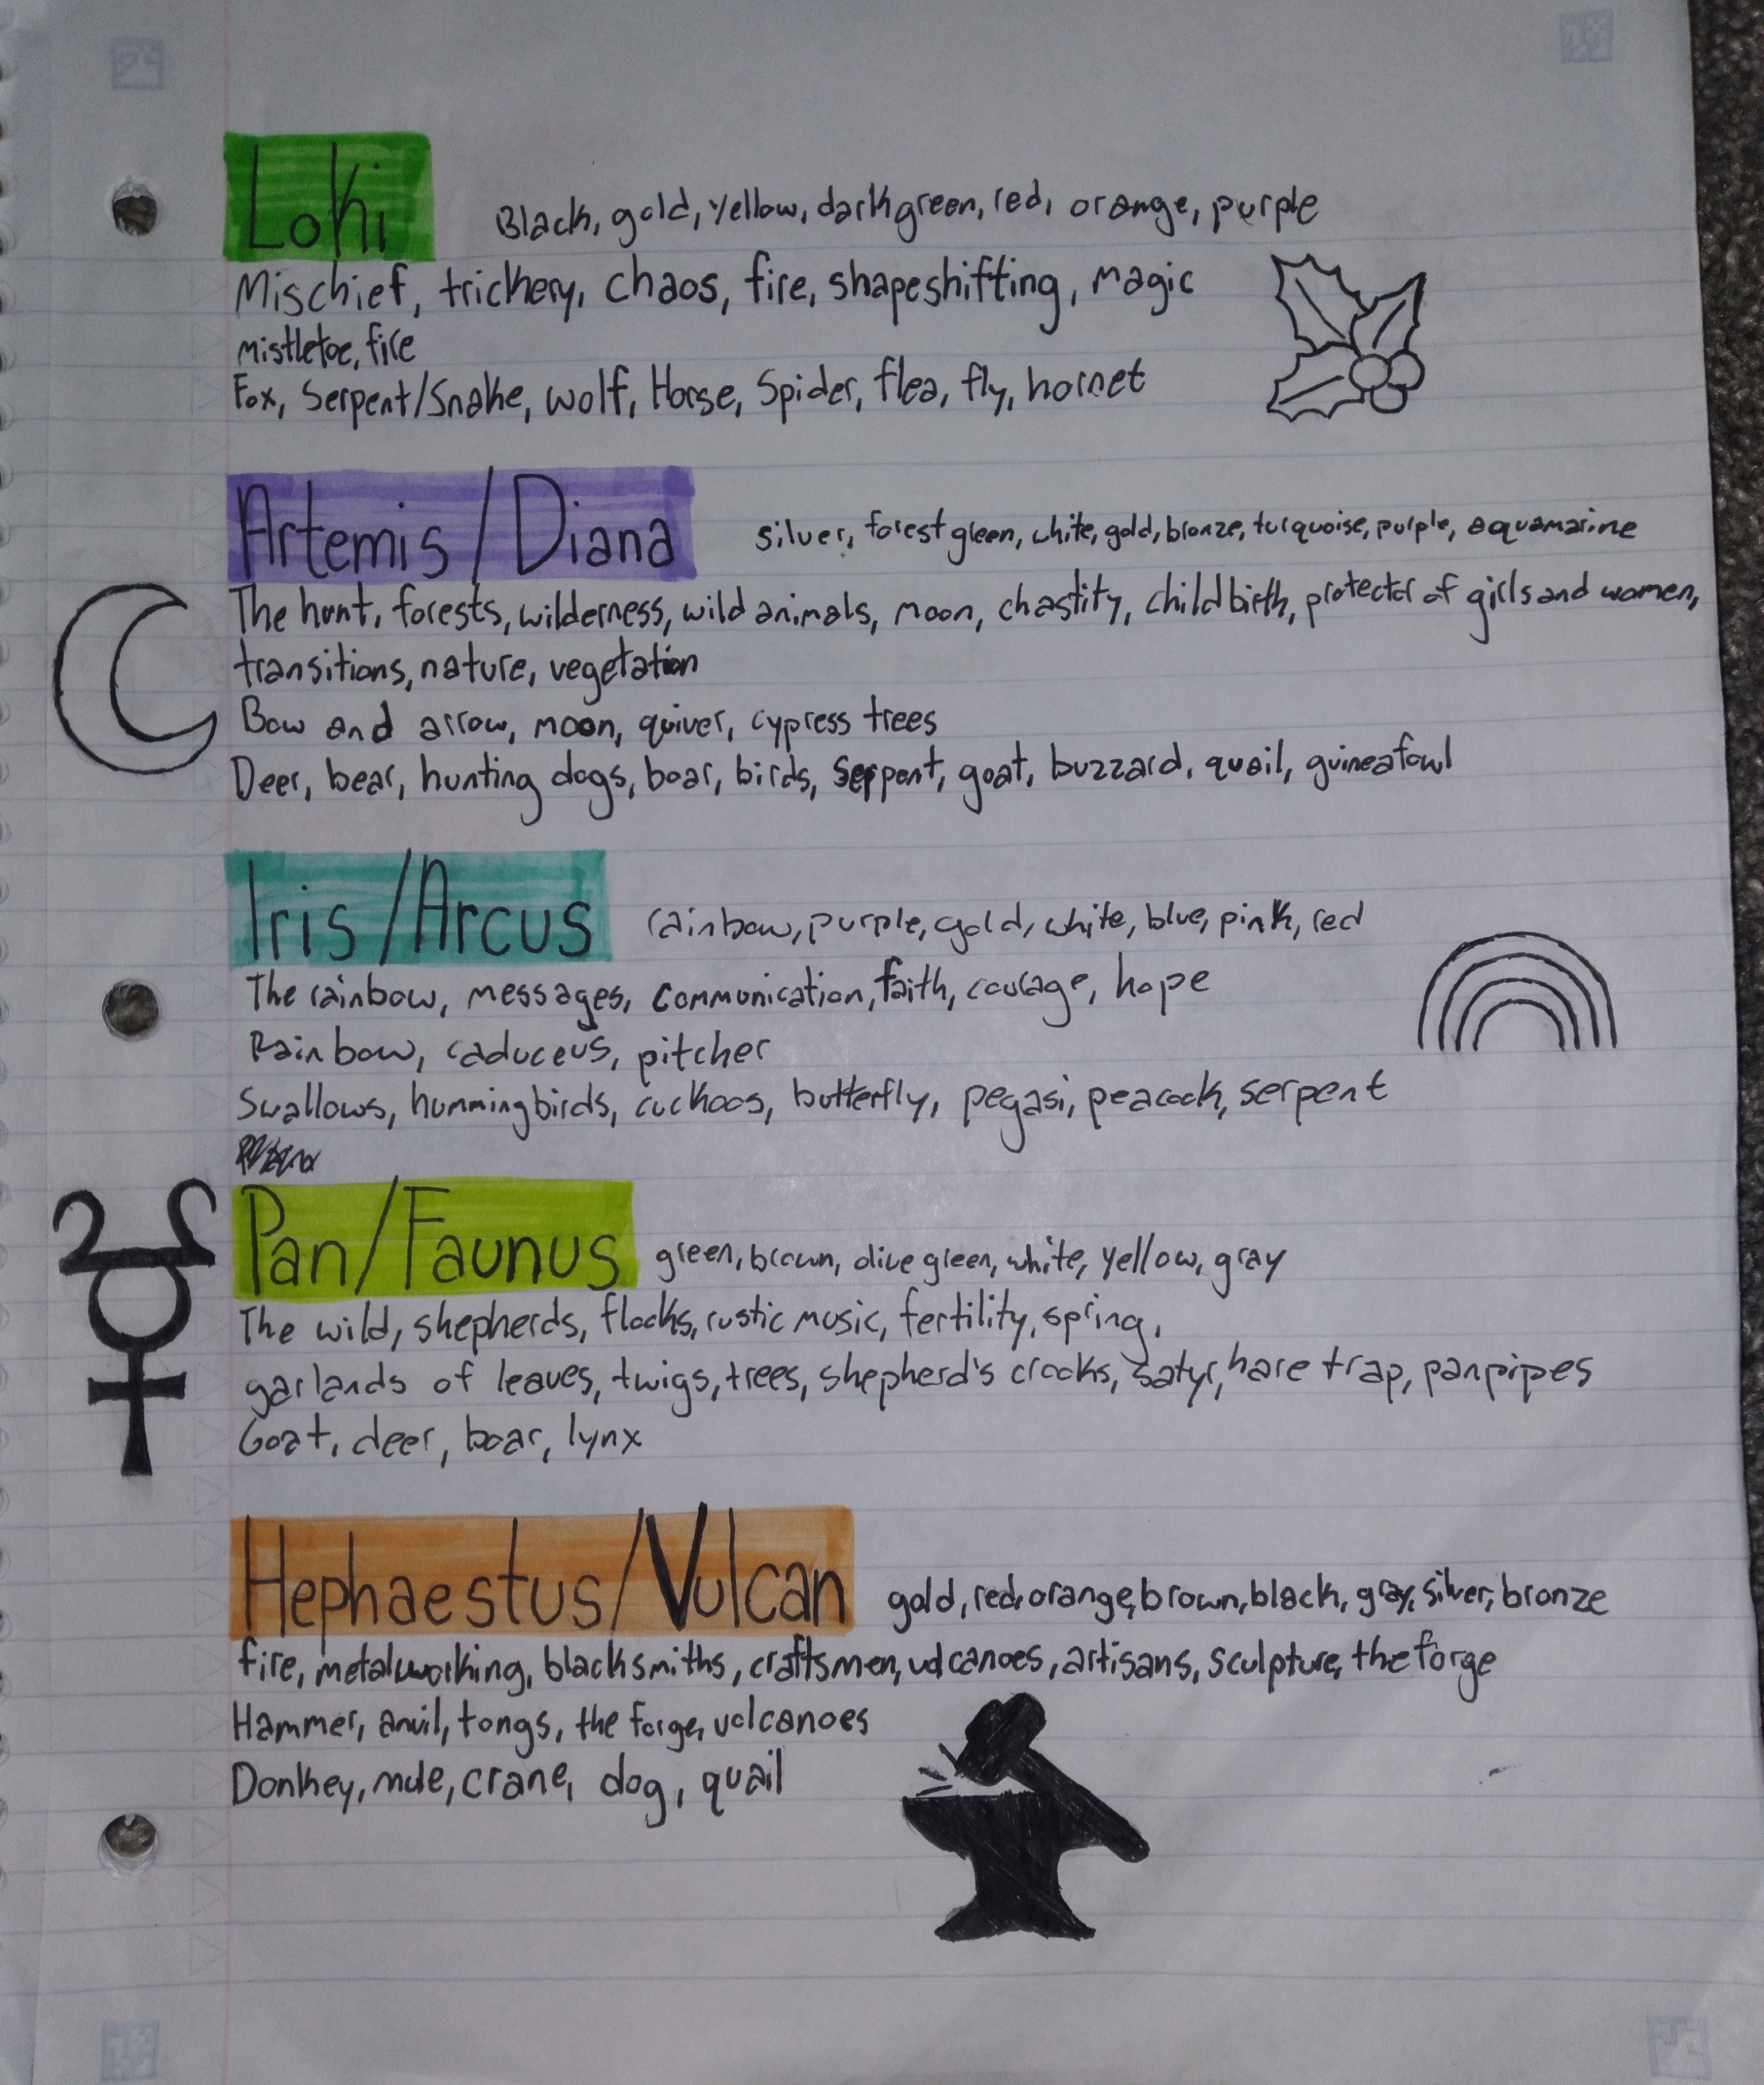 Loki Black, gold, yellow, dark green, red, orange, purple
Mischief, trickery, chaos, fire, shapeshifting, magic
mistletoe, fire
Fox, Serpent/Snake, wolf, Horse, Spider, flea, fly, hornet
Artemis/Diana silver, forest green, white, gold, bronze, turquoise, purple, aquamarine
The hunt, forests, wilderness, wild animals, moon, chastity, childbirth, protector of girls and women,
transitions, nature, vegetation
Bow and arrow, moon, quiver, cypress trees
Deer, bear, hunting dogs, boar, birds, serpent, goat, buzzard, quail, guineafowl
Iris/Arcus rainbow, purple, gold, white, blue, pink, red
The rainbow, messages, communication, faith, courage, hope
Rainbow, caduceus, pitcher
Swallows, hummingbirds, cuckoos, butterfly, pegasi, peacock, serpent
Pan/Faunus green, brown, olive green, white, yellow, gray
The wild, shepherds, flocks, rustic music, fertility, spring,
garlands of leaves, twigs, trees, shepherd's crooks, satyr, hare trap, panpipes
Goat, deer, boar, lynx
Hephaestus/Vulcan gold, red, orange, brown, black, gray, silver, bronze
fire, metalworking, blacksmiths, craftsmen, volcanoes, artisans, sculpture, the forge
Hammer, anvil, tongs, the forge, volcanoes
Donkey, mule, crane, dog, quail